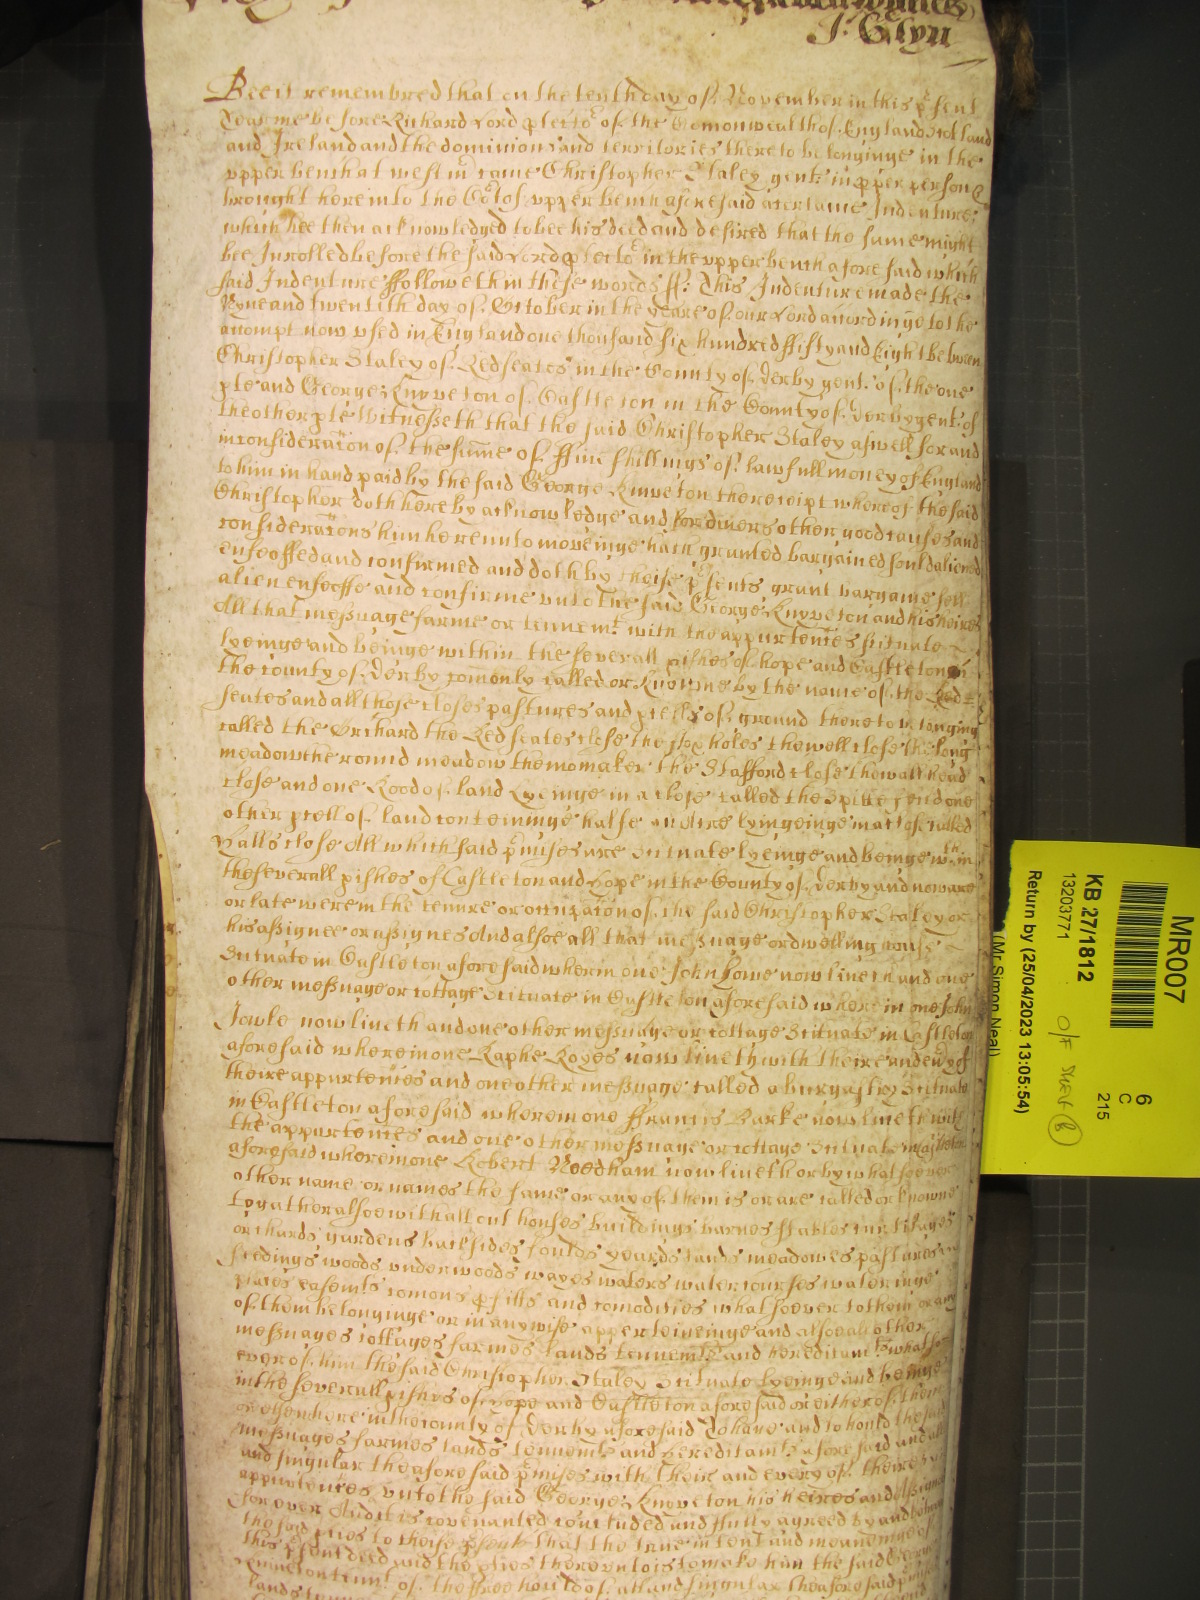 J: Glyn
Bee it remembred that on the tenth day of November in this p'sent
yeare before Richard Lord p'tecto' of the Comonwealth of England Scotland
and Ireland and the dominions and territories thereto belonginge in the
vpper bench at westm' came Christopher Staley gent in p'per person &
brought here into the Co't of vpper bench aforesaid a certaine Indenture
which hee then acknowledged to bee his deed and desired that the same might
bee Inrolled before the said Lord p'tecto' in the vpper bench aforesaid which
said Indenture ffolloweth in these words ff: This Indenture made the
Nyne and twentith day of October in the yeare of our Lord accordinge to the
accompt now vsed in England one thousand six hundred ffifty and Eight Betweene
Christopher Staley of Redseates in the County of Derby gent of the one
p'te and George Knyveton of Castleton in the County of Derby gent of
the other p'te Witnesseth that the said Christopher Staley aswell for and
in consideracon of the sume of ffive shillings of lawfull money of England
to him in hand paid by the said George Knyveton the receipt whereof the said
Christopher doth hereby acknowledge and for divers other good causes and
consideracons him hereunto moveinge hath granted bargained sould aliened
enfeoffed and confirmed and doth by theise p'sents grant bargaine sell
alien enfeoffe and confirme vnto the said George Knyveton and his heires
All that messuage farme or tennem't with the appurtences scituate
lyeinge and beinge within the severall p'ishes of hope and Castleton in
the county of Derby comonly called or knowne by the name of the Red
seates and all those closes pastures and p'cells of ground thereto belonging
called the Orchard the Redseates close the fox holes the well close the long
meadow the round meadow the the Stafford close the wall head
close and one Rood of land Lyeinge in a close called the end one
other p'cell of land conteininge halfe an Acre lyingeinge in a close called
Halls close All which said p'mises are Scituate lyeinge and beinge w'th in
the severall p'ishes of Castleton and Hope in the County of Derby and now are
or late were in the tenure or occupacon of the said Christopher Staley or
his assignee or assignes And alsoe all that messuage or dwelling house
Scituate in Castleton aforesaid wherin one John Lowe now liveth and one
other messuage or cottage Scituate in Castleton aforesaid wherein one John
Jowle now liveth and one other messuage or cottage Scituate in Castleton
aforesaid wherein one Raphe Royes now liveth with theire and ev'y of
theire appurtences and one other messuage called a Scituate
in Castleton aforesaid wherein one ffrancis Barke now liveth with
the appurtences and one other messuage or cottage Scituate in Castleton
aforesaid wherein one Robert Needham now liveth or by what soever
other name or names the same or any of them is or are called or knowne
together alsoe with all out houses buildings barnes stables curtilages
orchards gardens backsides foulds yeards lands meadowes pastures
feedings woods vnderwoods wayes waters watercourses wateringe
places easem'ts comons p'fitts and comodities whatsoever to them or any
of them belonginge or in any wise apperteineinge and alsoe all other
messuages cottages farmes lands tennem'ts and hereditam'ts whatso
ever of him the said Christopher Staley Scituate lyeinge and beinge
in the severall p'ishes of Hope and Castleton aforesaid or either of them
or elsewhere in the county of Derby aforesaid To have and to hould the said
messuages farmes lands tennem'ts and hereditam'ts aforesaid and all
and singular the aforesaid p'mises with their and every of theire
appurtences vnto the said George Knyveton his heires and Assignes
for ever And it is covenanted concluded and fully agreed by and betwene
the said p'ties to theise p'sents that the true intent and meaneing of
this p'sent deed and the p'ties therevnto is to make him the said George
Knyveton ten'nt of the freehould of all and singular the aforesaid p'mises
MR007
6
C
215
KB 27/1812
13203771
O/F
Return by (25/04/2023 13:05:54)
(Mr Simon Neal)